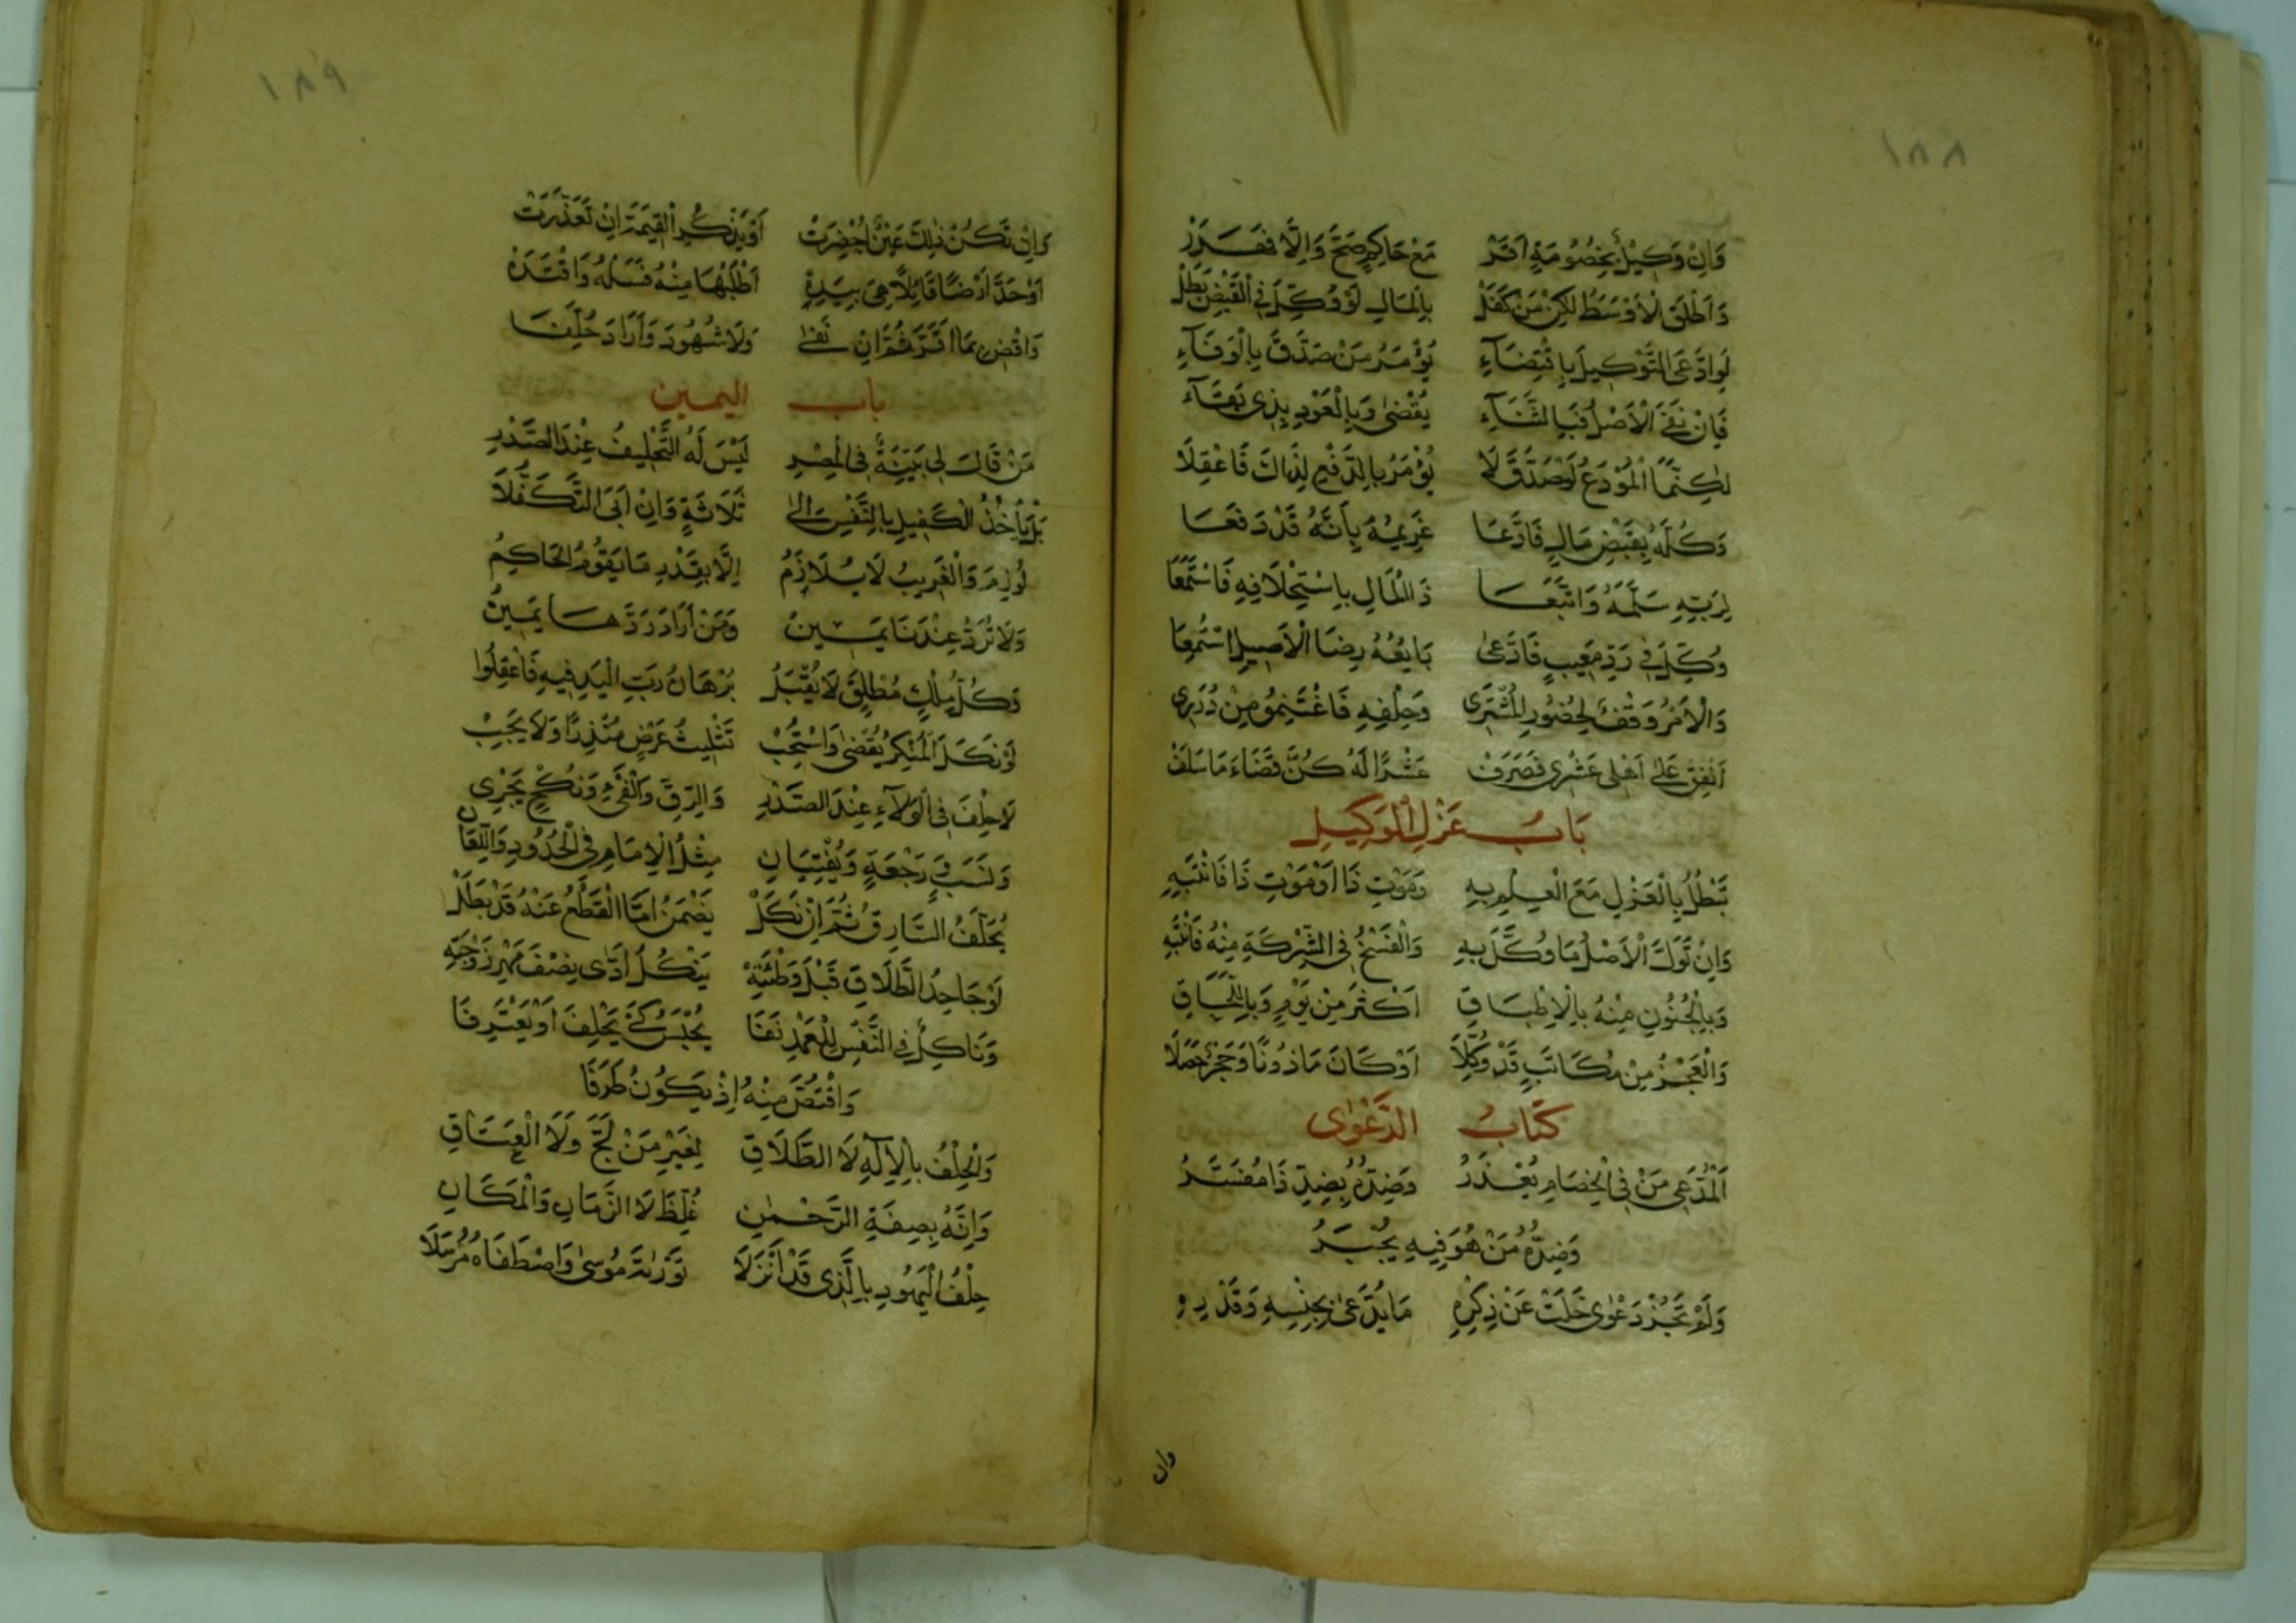 ١٨٨
وَاِنْ وَكِيْلٌ بِخُصُومَةٍ اَقَرّْ مَعْ حَاكِمٍ صَحَّ وَاِلَّا
وَاَطْلَقَ الْاَوْسَطُ لٰكِنْ مَنْ كَفَلْ بِالْمَالِ لَوْ وُكِّلَ فِي الْقَبْضِ بَطَلْ
لَوِادَّعَى التَّوْكِيلَ بِاقْتِضَاءِ يُؤْمَرُ مَنْ صَدَّقَ بِالْوَفَاءِ
فَاِنْ نَفَى الْاَصْلُ فَبِالثَّنَاءِ يُقْضٰى وَبِالْعَوْدِ بِذِي بَقَاءِ
لٰكِنَّمَا الْمُوْدَعُ لَوْ صَدَّقَ لَا يُؤْمَرُ بِالدَّفْعِ لِذَاكَ فَاعْقِلَا
وَكَّلَهُ بِقَبْضِ مَالٍ فَادَّعَا غَرِيمُهُ بِاَنَّهُ قَدْ دَفَعَا
لِرَبِّهِ سَلَّمَهُ وَاتَّبَعَا ذَا الْمَالِ بِاسْتِحْلَافِهِ فَاسْتَمَعَا
وُكِّلَ فِي رَدِّ مَعِيبٍ فَادَّعٰى بَايِعُهُ رِضَا الْاَصِيلِ اسْتَمِعَا
وَالْاَمْرُ وَقْفٌ لِحُضُورِ الْمُشْتَرِي وَحَلْفِهِ فَاغْتَنِمُو مِنْ دُرَرِي
اَنْفِقْ عَلٰى اَهْلِي عَشْرِي فَصَرَفْ عَشْرًا لَهُ كُنَّ قَضَاءَ مَا سَلَفْ
بَابُ عَزْلِ الْوَكِيلِ
تَبْطُلُ بِالْعَزْلِ مَعَ الْعِلْمِ بِهِ وَمَوْتِ ذَا اَوْ مَوْتِ ذَا فَانْتَبِهِ
وَاِنْ تَوَلَّ الْاَصْلُ مَا وُكِّلَ بِهِ وَالْفَسْخُ فِي الشِّرْكَةِ مِنْهُ فَانْتَبِهِ
وَبِالْجُنُونِ مِنْهُ بِالْاِطْبَاقِ اَكْثَرَ مِنْ يَوْمٍ وَبِاللِّحَاقِ
وَالْعَجْزُ مِنْ مُكَاتَبٍ قَدْ وَكَّلَا اَوْ كَانَ مَاذُونًا وَحَجْرٌ حَصَلَا
كِتَابُ الدَّعْوٰى
اَلْمُدَّعِي مَنْ فِي الْخِصَامِ يُعْذَرُ وَضِدُّهُ بِضِدِّ ذَا مُفَسَّرُ
وَضِدُّهُ مَنْ هُوَ فِيهِ يُجْبَرُ
وَلَمْ تَجُزْ دَعْوٰى خَلَتْ عَنْ ذِكْرِهِ مَا يُدَّعٰى بِجِنْسِهِ وَقَدْرِهِ
وان
١٨٩
وَاِنْ تَكُنْ ذٰلِكَ عَيْنٌ اُحْضِرَتْ اَوْ يَذْكُرِ الْقِيمَةَ اِنْ تَعَذَّرَتْ
اَوْ حَدَّ اَرْضًا قَائِلًا هِيَ بِيَدِهْ اَطْلُبُهَا مِنْهُ فَسَلْهُ وَاقْتَدِهْ
وَاقْضِ بِمَا اَقَرَّ ثُمَّ اِنْ نَفٰى وَلَا شُهُودَ وَاَرَادَ حُلِّفَا
باب اليمين
مَنْ قَالَ لِي بَيِّنَةٌ فِي الْمِصْرِ لَيْسَ لَهُ التَّحْلِيفُ عِنْدَ الصَّدْرِ
بَلْ يَأْخُذُ الْكَفِيلَ بِالنَّفْسِ اِلٰى ثَلَاثَةٍ وَاِنْ اَبَى التَّكَفُّلَا
لُوزِمَ وَالْغَرِيبُ لَا يُلَازَمُ اِلَّا بِقَدْرِ مَا يَقُومُ الْحَاكِمُ
وَلَا تُرَدُّ عِنْدَنَا يَمِينُ وَمَنْ اَرَادَ رَدَّهَا يَمِينُ
وَكُلُّ مِلْكٍ مُطْلَقٍ لَا يُقْبَلُ بُرْهَانُ رَبِّ الْيَدِ فِيهِ فَاعْقِلُوا
لَوْ نَكَلَ الْمُنْكِرُ يُقْضٰى وَاسْتُحِبّْ تَثْلِيثُ عَرْضٍ مُنْذِرًا وَلَا يَجِبْ
لَا حَلْفَ فِي الْوَلَاءِ عِنْدَ الصَّدْرِ وَالرِّقِّ وَالْفَيْءِ وَنُكْحٍ يَجْرِي
وَنَسَبٍ وَرَجْعَةٍ وَيُفْتِيَانِ مِثْلُ الْاِمَامِ فِي الْحُدُودِ وَاللِّعَانِ
يُحَلَّفُ السَّارِقُ ثُمَّ اِنْ نَكَلْ يَضْمَنُ اَمَّا الْقَطْعُ عَنْهُ قَدْ بَطَلْ
لَوْ جَاحِدُ الطَّلَاقِ قَبْلَ وَطْئَتِهْ يَنْكُلُ اَدّٰى نِصْفَ مَهْرِ زَوْجَتِهْ
وَنَاكِلٌ فِي النَّفْسِ لِلْعَمْدِ نَفَا يُحْبَسُ كَيْ يَحْلِفَ اَوْ يَعْتَرِفَا
وَاقْتَصَّ مِنْهُ اِذْ يَكُونُ طَرَفَا
وَالْحِلْفُ بِالْاِلٰهِ لَا الطَّلَاقِ لِغَيْرِ مَنْ لَجَّ وَلَا الْعِتَاقِ
وَاِنَّهُ بِصِفَةِ الرَّحْمٰنِ غُلِّظَ لَا الزَّمَانِ وَالْمَكَانِ
حِلْفُ الْيَهُودِ بِالَّذِي قَدْ اَنْزَلَا تَوْرٰىةَ مُوسٰى وَاصْطَفَاهُ مُرْسَلَا